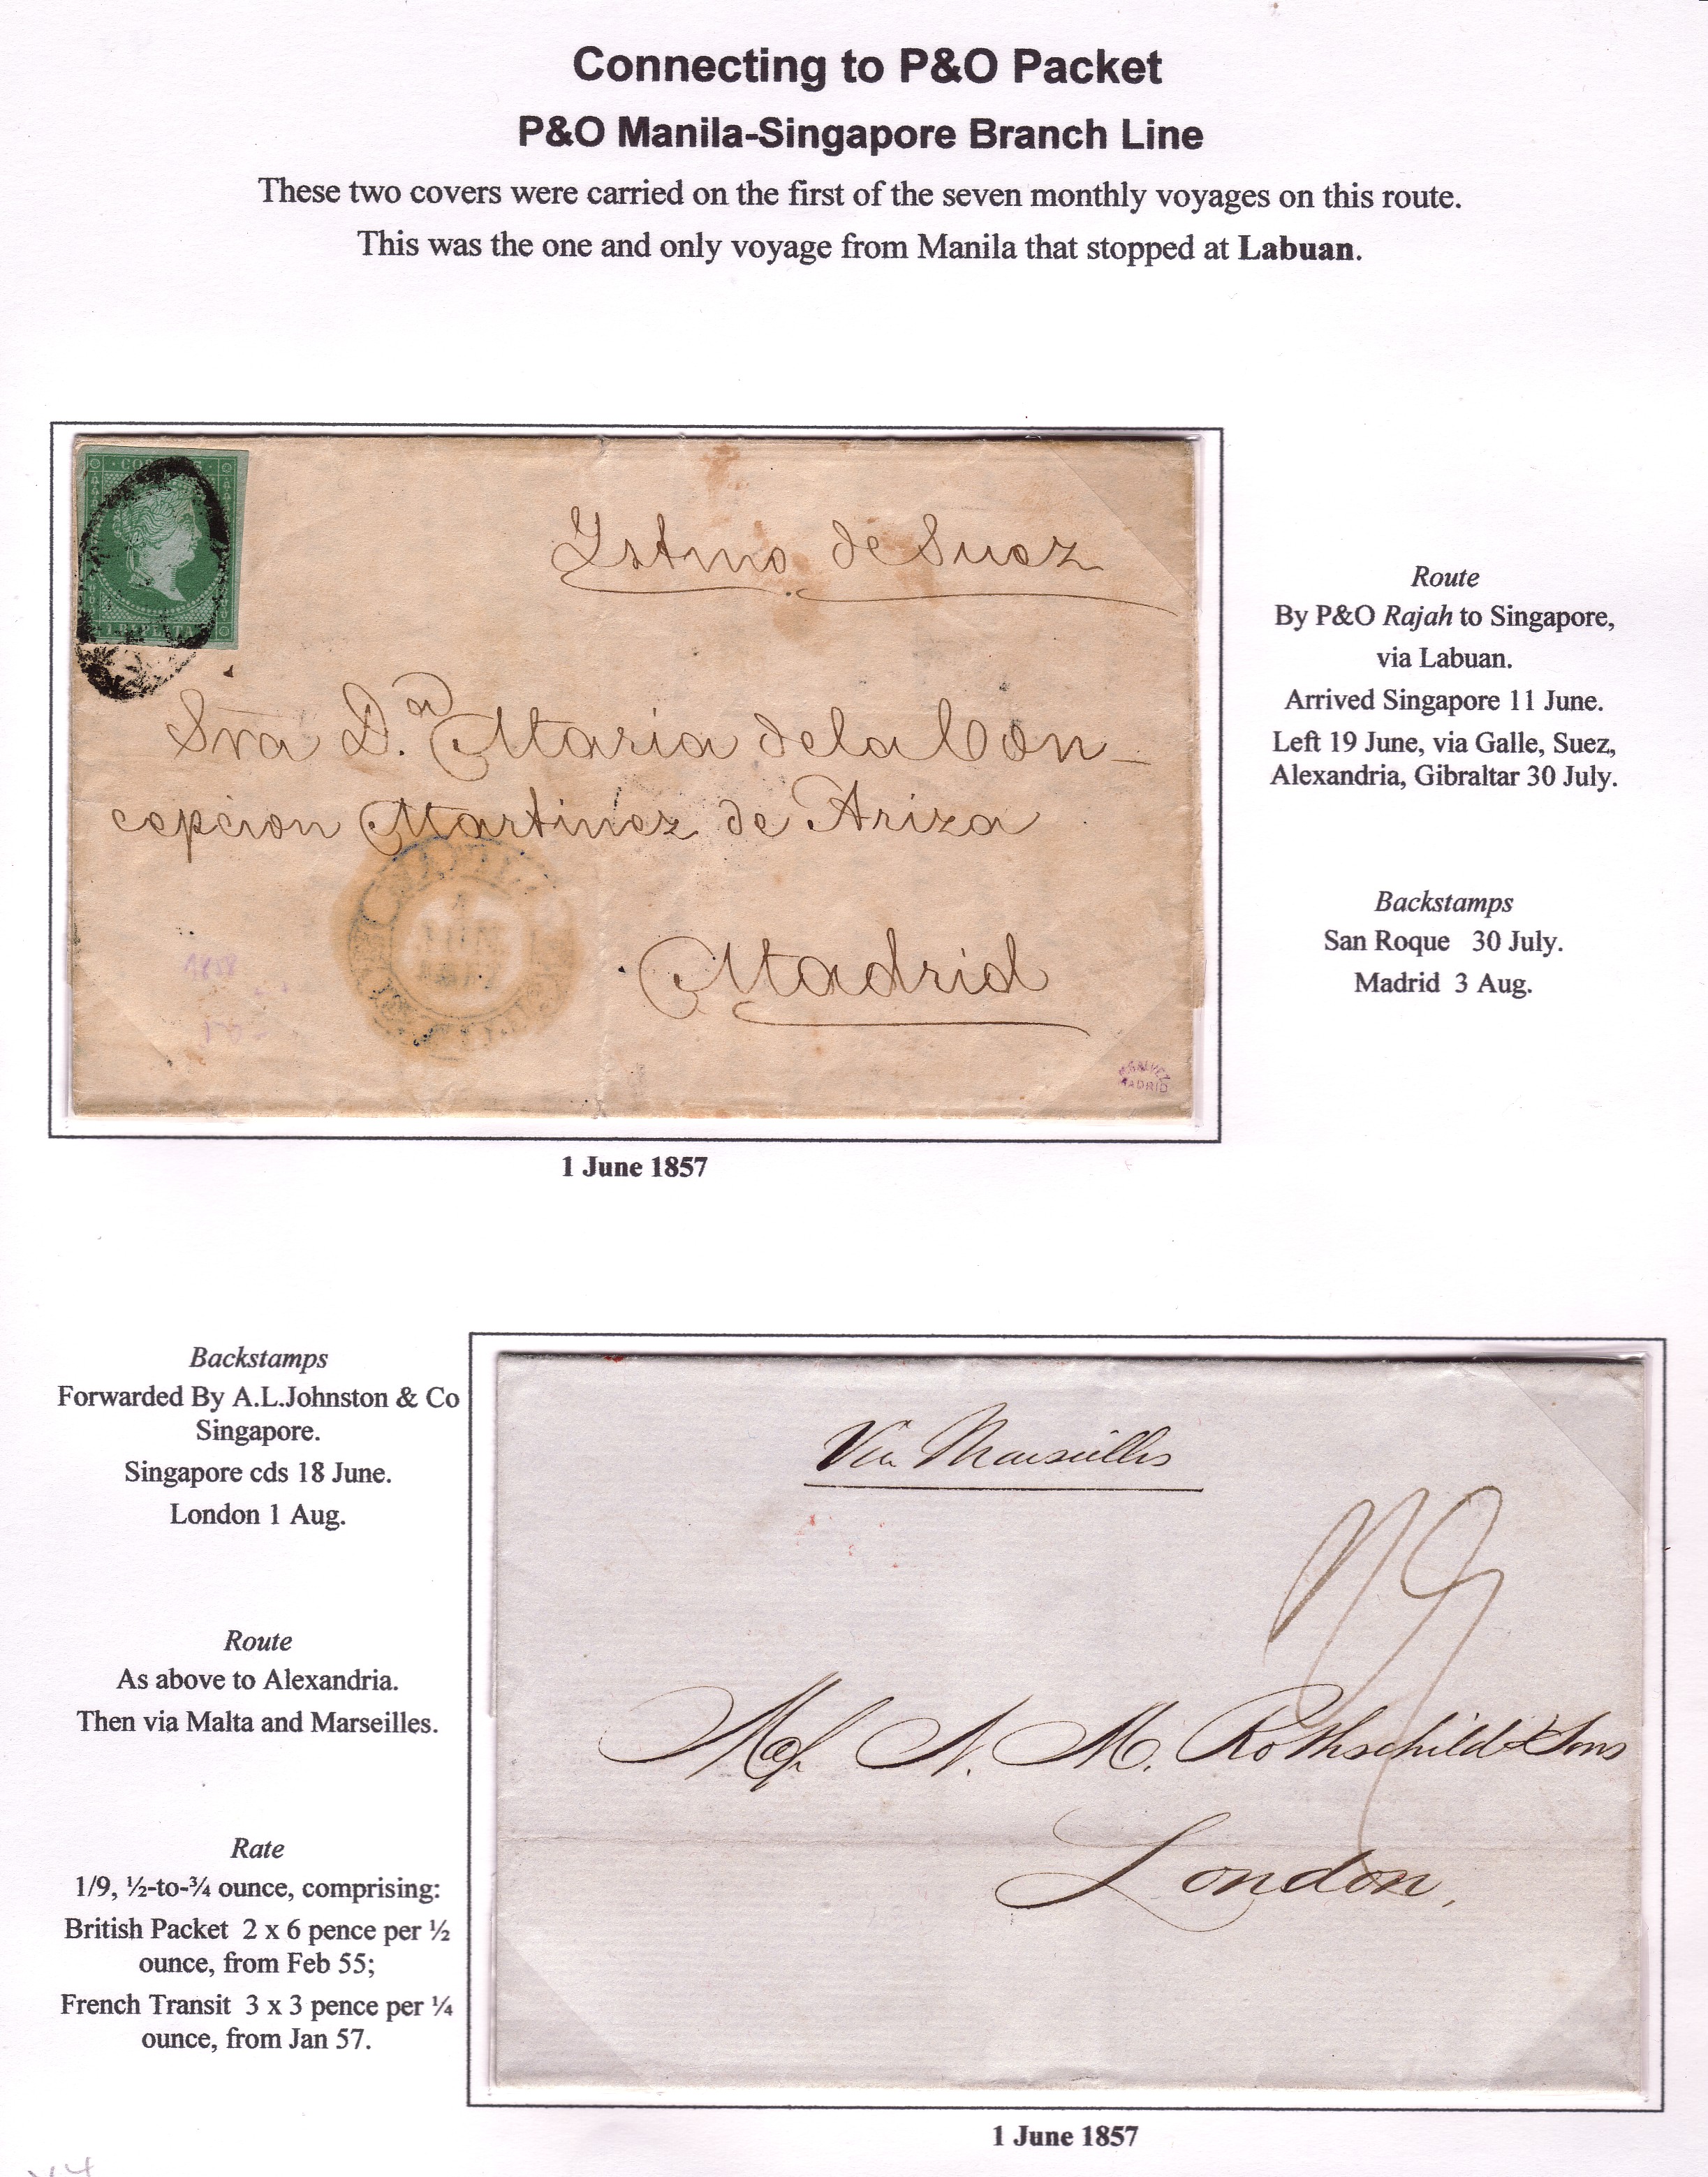 Connecting to P&O Packet
P&O Manila-Singapore Branch Line
These two covers were carried on the first of the seven monthly voyages on this route.
This was the one and only voyage from Manila that stopped at Labuan.
Ystmo de Suez
Sra D.ª Maria de la Con-
cepcion Martinez de Ariza
Madrid
1858
GALVEZ
MADRID
1 June 1857
Route
By P&O Rajah to Singapore,
via Labuan.
Arrived Singapore 11 June.
Left 19 June, via Galle, Suez,
Alexandria, Gibraltar 30 July.
Backstamps
San Roque 30 July.
Madrid 3 Aug.
Backstamps
Forwarded By A.L.Johnston & Co
Singapore.
Singapore cds 18 June.
London 1 Aug.
Route
As above to Alexandria.
Then via Malta and Marseilles.
Rate
1/9, ½-to-¾ ounce, comprising:
British Packet 2 x 6 pence per ½
ounce, from Feb 55;
French Transit 3 x 3 pence per ¼
ounce, from Jan 57.
Via Marseilles
1/9
Messrs N. M. Rothschild & Sons
London,
1 June 1857